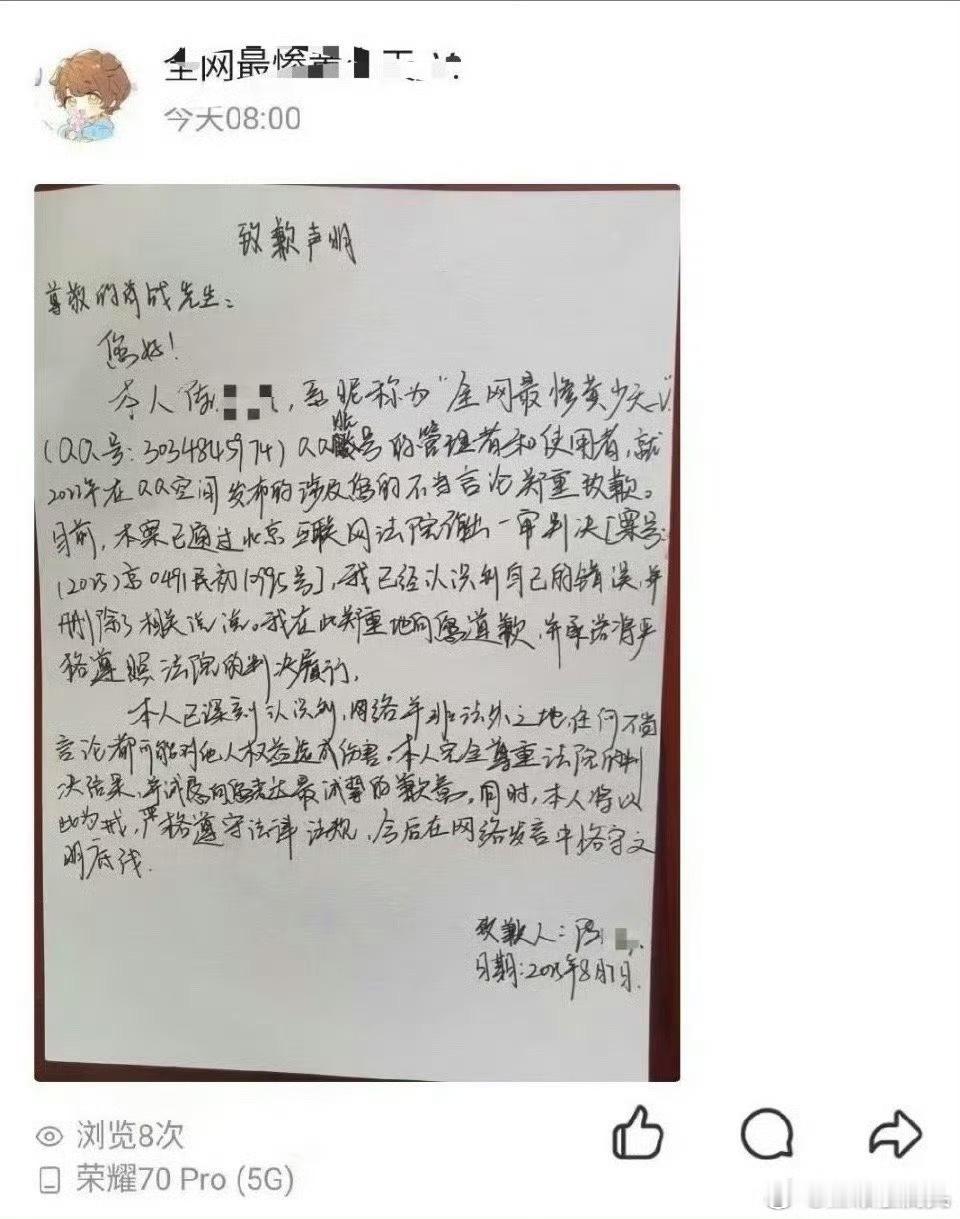 全网最惨
今天08:00
致歉声明
尊敬的肖战先生：
您好！
本人陈，系昵称为“全网最惨黄少天
(QQ号：3034845974)QQ账号的管理者和使用者，就
2022年在QQ空间发布的涉及您的不当言论郑重致歉。
目前，本案已通过北京互联网法院做出一审判决[案号：
(2025)京0491民初1995号]，我已经认识到自己的错误，并
删除了相关说说。我在此郑重地向您道歉，并承诺将严
格遵照法院的判决履行。
本人已深刻认识到，网络并非法外之地，任何不当
言论都可能对他人权益造成伤害。本人完全尊重法院的判
决结果，并诚恳向您表达最诚挚的歉意。同时，本人将以
此为戒，严格遵守法律法规，今后在网络发言中恪守文
明底线.
致歉人：陈
日期：2025年8月7日.
浏览8次
荣耀70 Pro (5G)